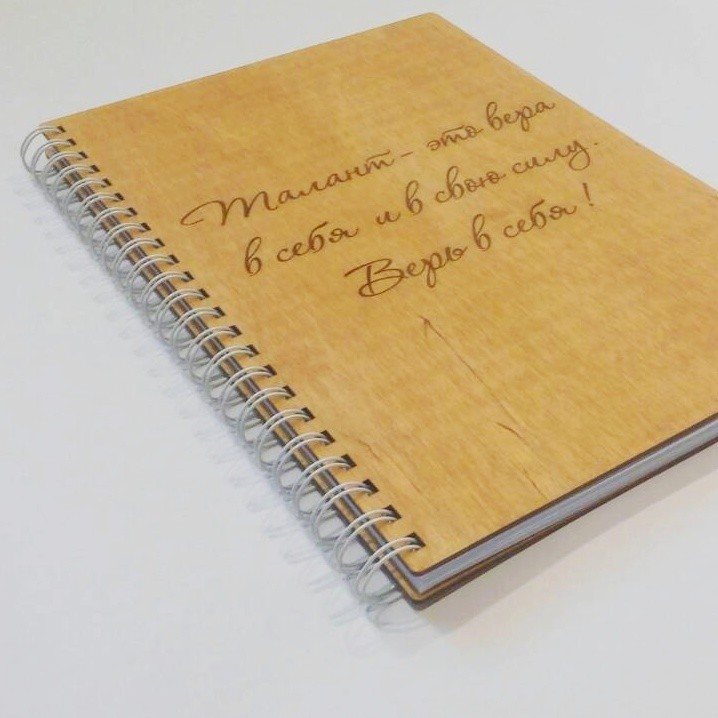 Талант - это вера
в себя и в свою силу.
Верь в себя!